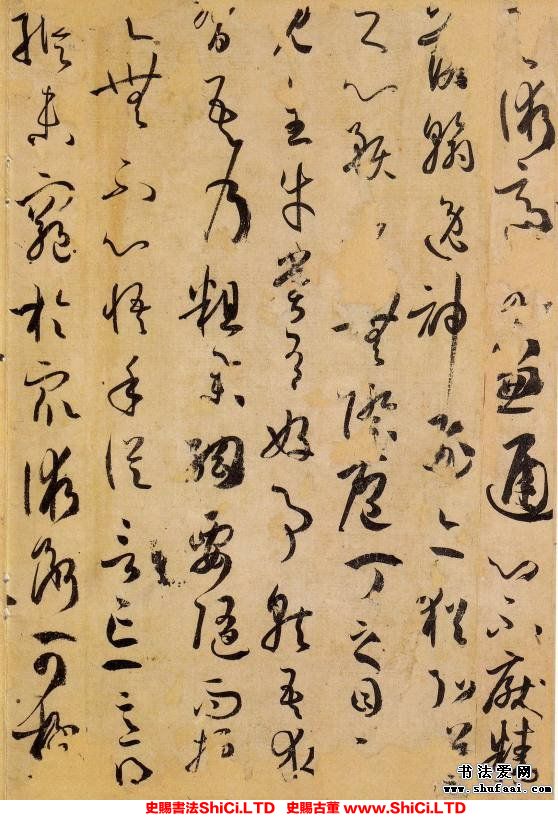 術適可兼通心不厭精
落翰逸神飛亦猶弘羊
之心預乎無際庖丁之目不
見全牛嘗有好事就吾求
習吾乃粗舉綱要隨而授
之無不心悟手從言忘意得
縱未窮於眾術斷可極
书法爱网
www.shufaai.com
史賜書法ShiCi.LTD 史賜古董 www.ShiCi.LTD